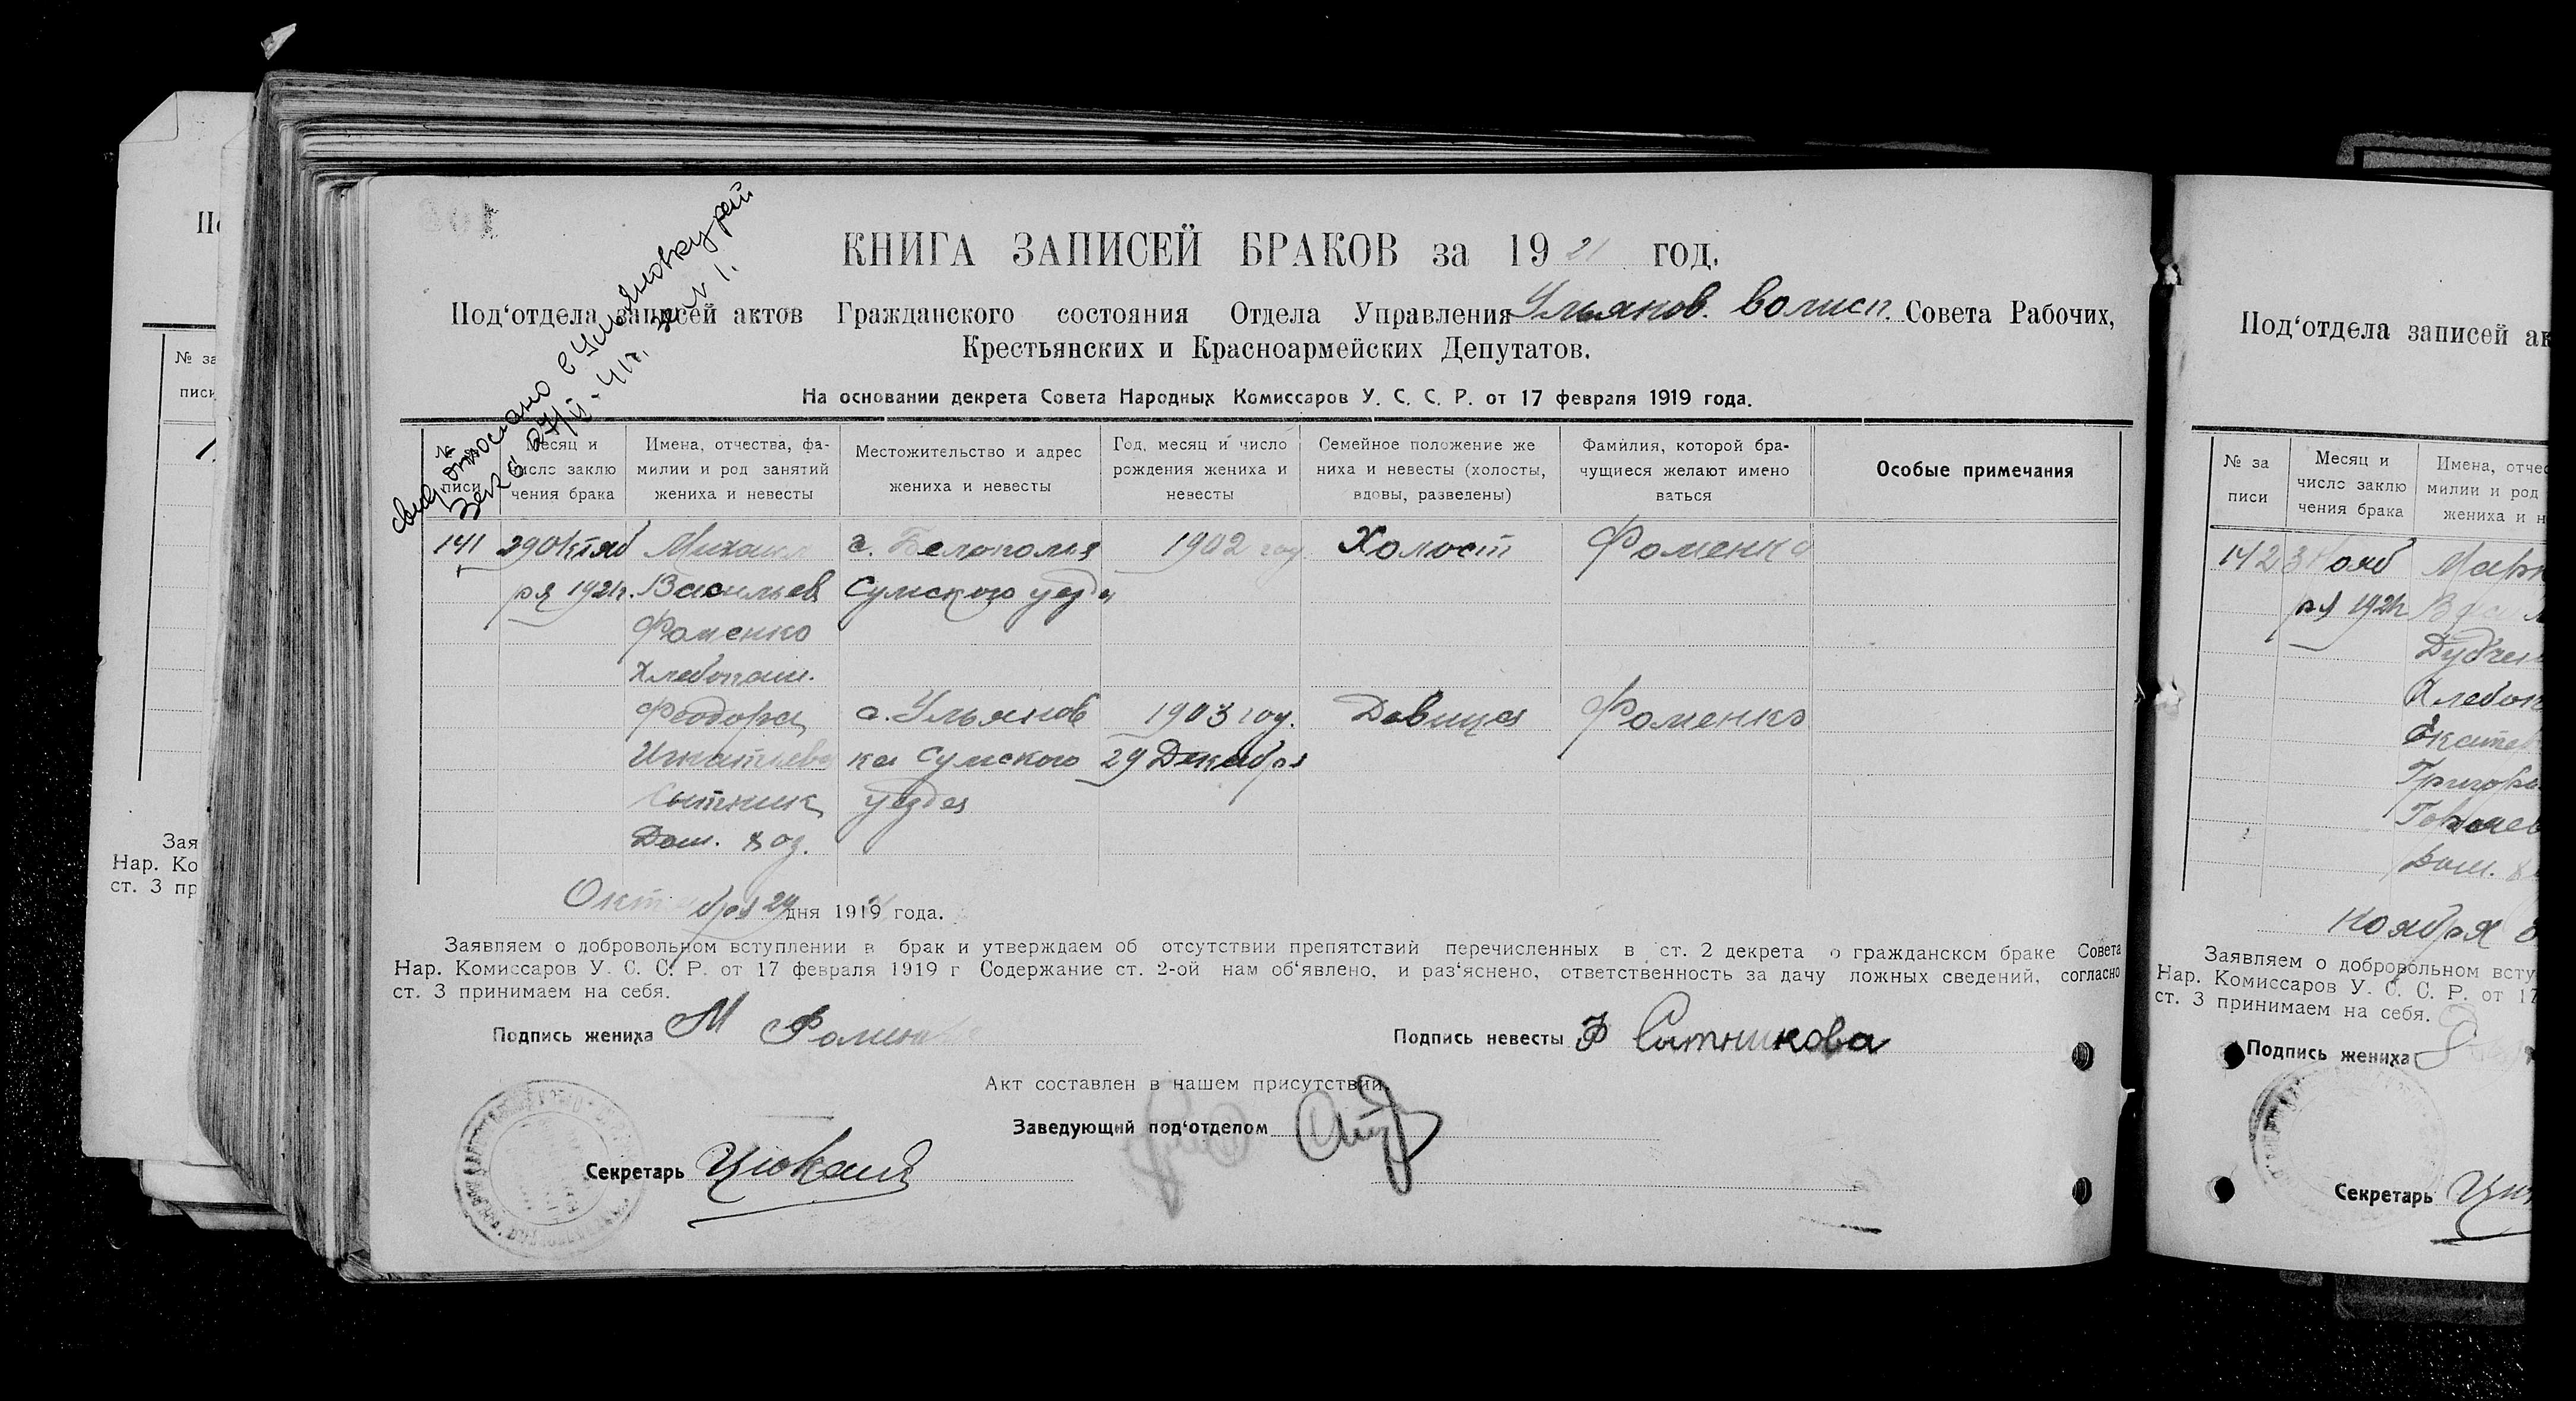 КНИГА ЗАПИСЕЙ БРАКОВ за 1921 год.
Под‘отдела записей актов Гражданского состояния Отдела Управления Ульянов. волисп. Совета Рабочих,
Крестьянских и Красноармейских Депутатов.
На основании декрета Совета Народных Комиссаров У. С. С. Р. от 17 февраля 1919 года.
№ писи
Месяц и число заклю чения брака
Имена, отчества, фа- милии и род занятий жениха и невесты
Местожительство и адрес жениха и невесты
Год, месяц и число рождения жениха и невесты
Семейное положение же ниха и невесты (холосты, вдовы, разведены)
Фамилия, которой бра- чущиеся желают имено ваться
Особые примечания
141 29 Октяб Михаил с. Белополя 1902 год Холост Фоменко
ря 1921г. Васильев Сумского уезда
Фоменко
Хлебопаш.
Феодора с. Ульянов 1903 год. Девица Фоменко
Игнатьева ка Сумского 29 Декабря
Сытник уезда
Дом. хоз.
Октября 29 дня 1919 года.
Заявляем о добровольном вступлении в брак и утверждаем об отсутствии препятствий перечисленных в ст. 2 декрета о гражданском браке Совета
Нар. Комиссаров У. С. С. Р. от 17 февраля 1919 г Содержание ст. 2-ой нам об‘явлено, и раз‘яснено, ответственность за дачу ложных сведений, согласно
ст. 3 принимаем на себя.
Подпись жениха М Фоменко Подпись невесты Ф Сытникова
Акт составлен в нашем присутствии.
Заведующий под‘отделом
Секретарь
Под‘отдела записей ак
№ за писи
Месяц и число заклю чения брака
Имена, отчес милии и род жениха и н
142 3 Нояб
ря 1921г
Дудчен
Хлебоп
Григорь
Дом.
Ноября
Заявляем о добровольном всту
Нар. Комиссаров У. С. С. Р. от 17
ст. 3 принимаем на себя.
Подпись жениха
Секретарь
№ за
писи
Зая
Нар. Ко
ст. 3 пр